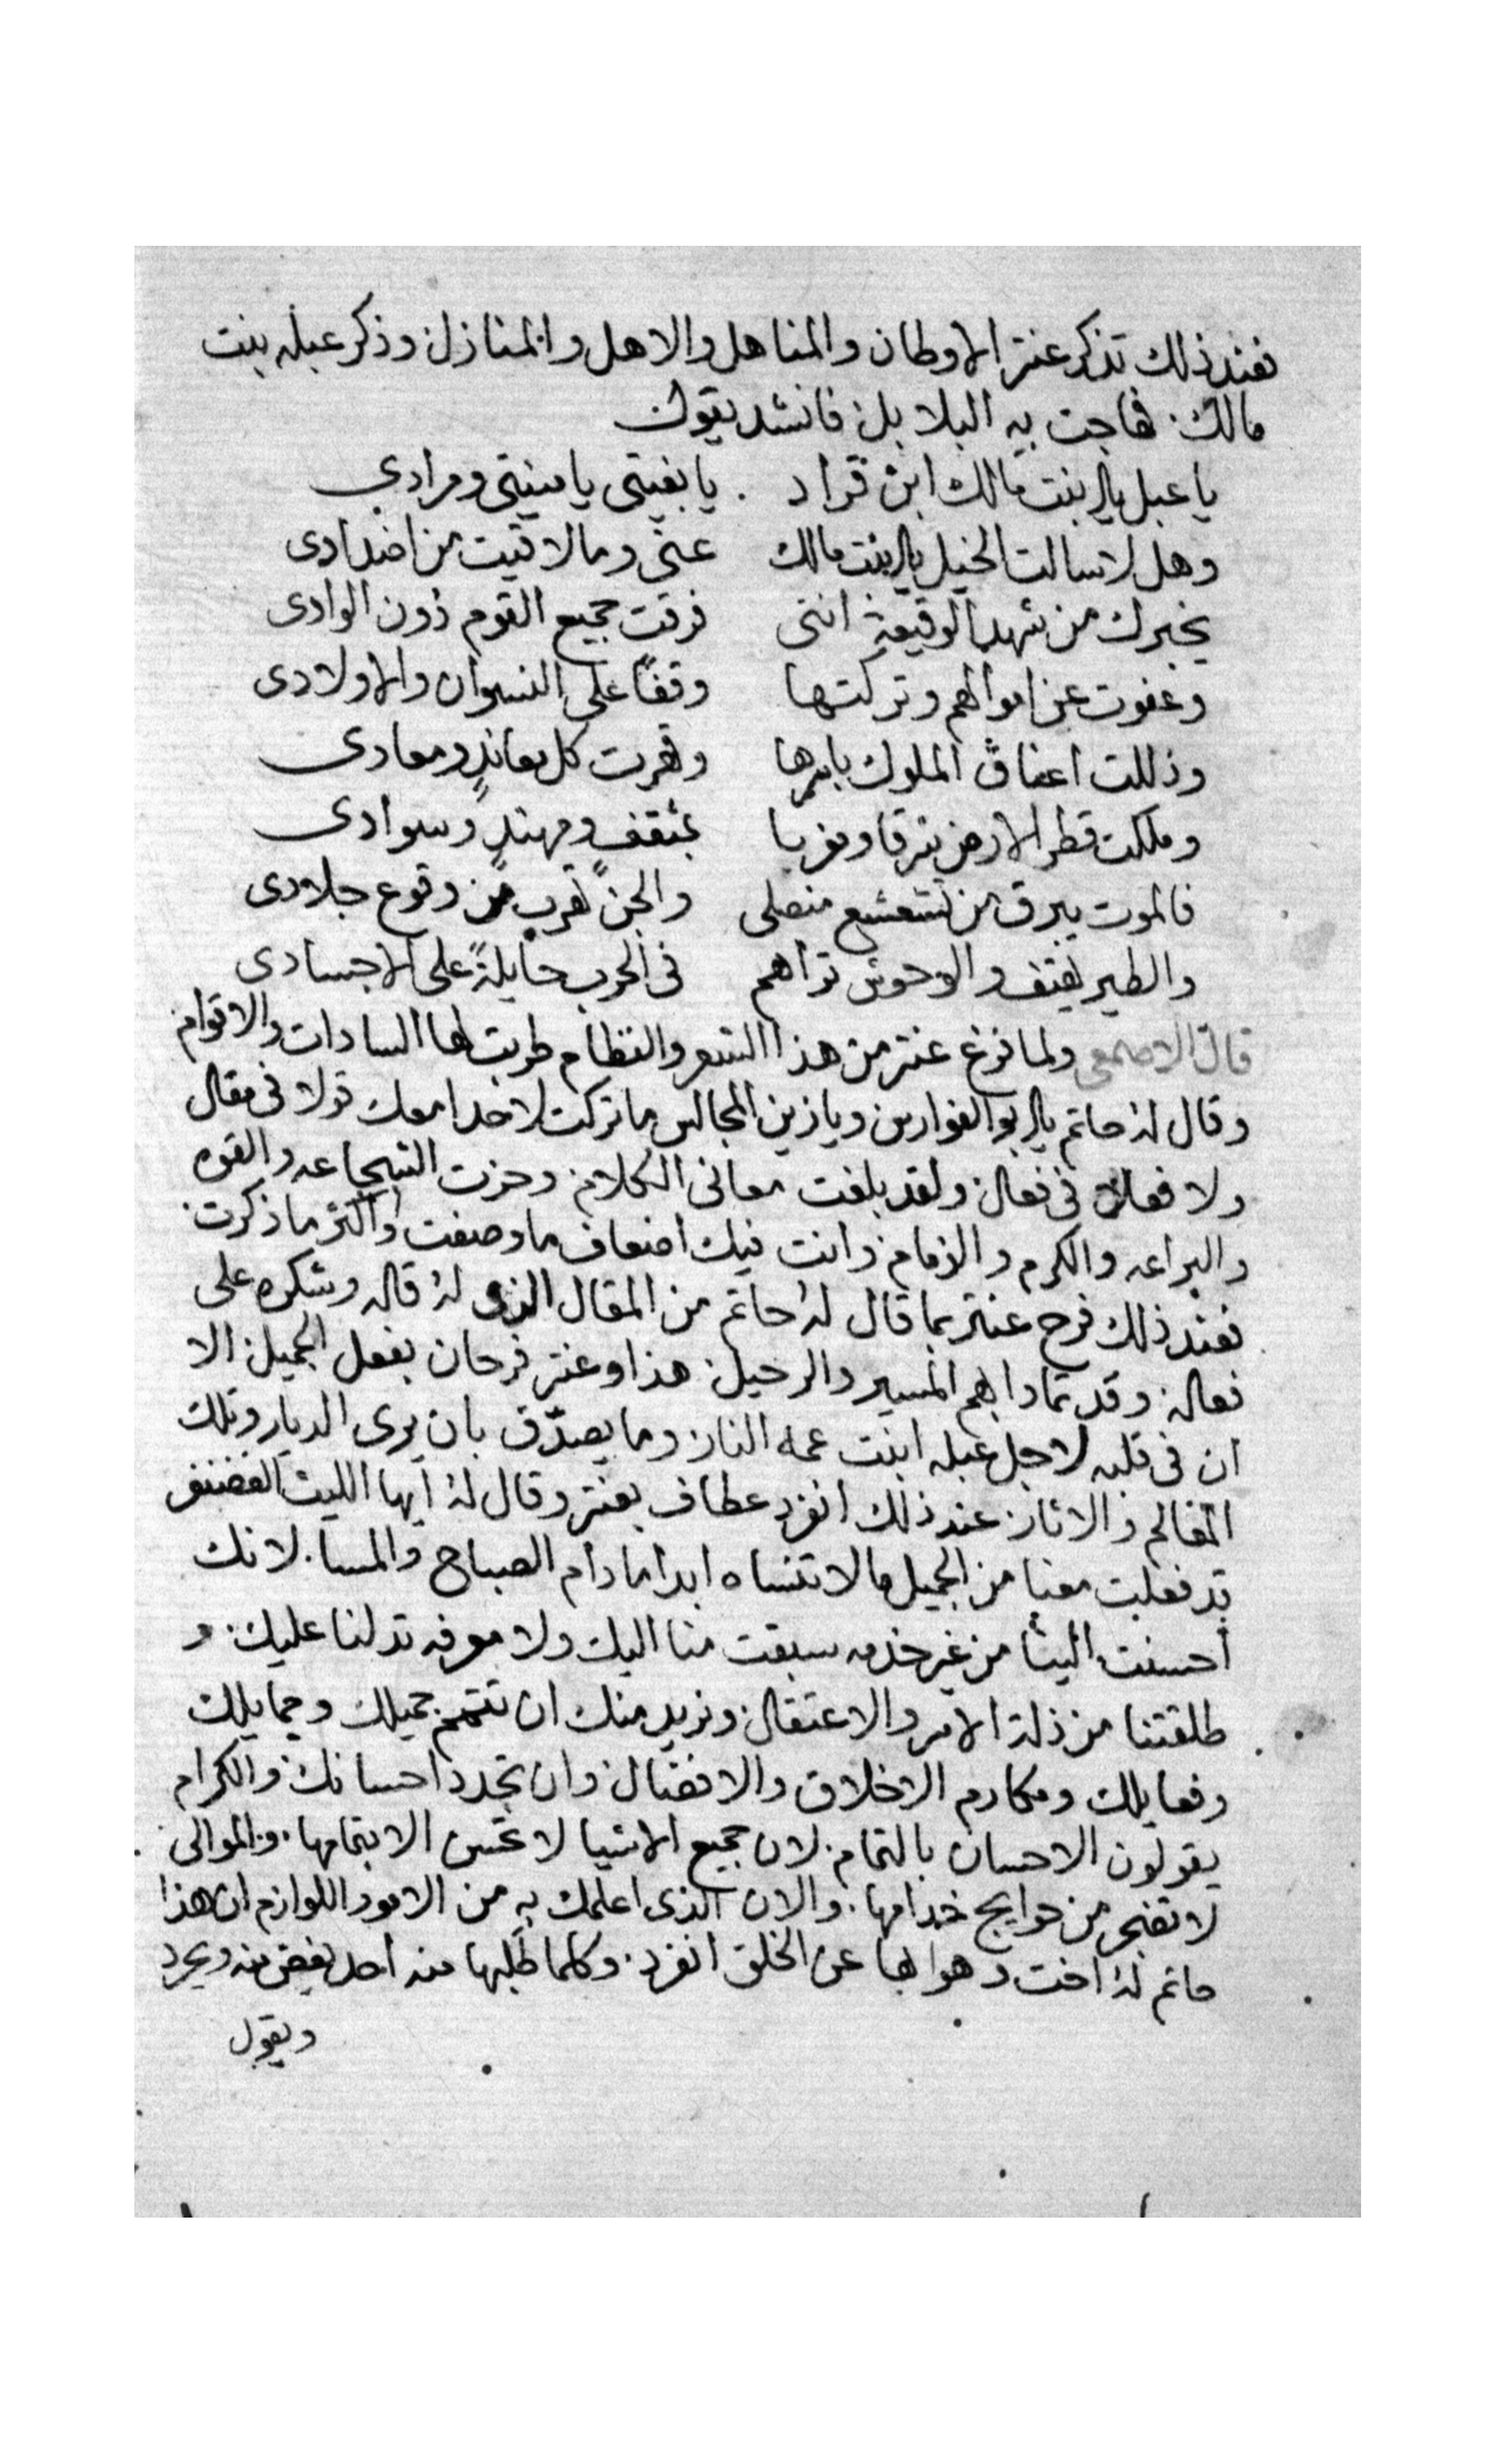 فعند ذلك تذكر عنتر الاوطان والمناهل والاهل والمنازل وذكر عبله بنت
مالك فهاجت به البلابل فانشد يقول
يا عبل يا بنت مالك ابن قراد . يا بغيتي يا منيتي ومرادي
وهل لا سالت الخيل يا بنت مالك عني وما لاقيت من اضدادى
يخبرك من شهد الوقيعة انني فرقت جميع القوم دون الوادى
وعفوت عن اموالهم وتركتها وقفاً على النسوان والاولادى
وذللت اعناق الملوك باسرها وقهرت كل معاندٍ ومعادى
وملكت قطر الارض شرقا ومغربا بمثقفٍ ومهندٍ وسوادى
فالموت يبرق من تشعشع منصلي والجن تهرب من وقوع جلادى
والطير تهتف والوحوش تراهم فى الحرب حايلةً على الاجسادى
قال الاصمعي ولما فرغ عنتر من هذا الشعر والنظام طربت لها السادات والاقوام
وقال له حاتم يا ابو الفوارس ويا زين المجالس ما تركت لاحدا معك قولا فى مقال
ولا فعال فى فعال ولقد بلغت معانى الكلام وحزت الشجاعه والقوه
والبراعه والكرم والزمام وانت فيك اضعاف ما وصفت واكثر ما ذكرت
فعند ذلك فرح عنتر بما قال له حاتم من المقال الذى له قاله وشكره على
فعاله وقد تمادا بهم المسير والرحيل هذا وعنتر فرحان بفعل الجميل الا
ان فى قلبه لاجل عبله ابنت عمه النار وما يصدّق بان يرى الديار وتلك
المعالم والاثار عند ذلك انفرد عطاف بعنتر وقال له ايها الليث الغضنفر
قد فعلت معنا من الجميل ما لا تنساه ابدا ما دام الصباح والمسا لانك
احسنت الينا من غير خدمه سبقت منا اليك ولا معرفه تدلنا عليك و
طلقتنا من ذلة الاسر والاعتقال ونريد منك ان تتمم جميلك وجمايلك
وفعايلك ومكارم الاخلاق والافضال وان تجدد احسانك والكرام
يقولون الاحسان بالتمام لان جميع الاشيا لا تحسن الا بتمامها والموالى
لا تضجر من حوايج خدامها والان الذى اعلمك به من الامور اللوازم ان هذا
حاتم له اخت وهو بها عن الخلق انفرد وكلما طلبها منه احد يغضب منه ويحرد
ويقول